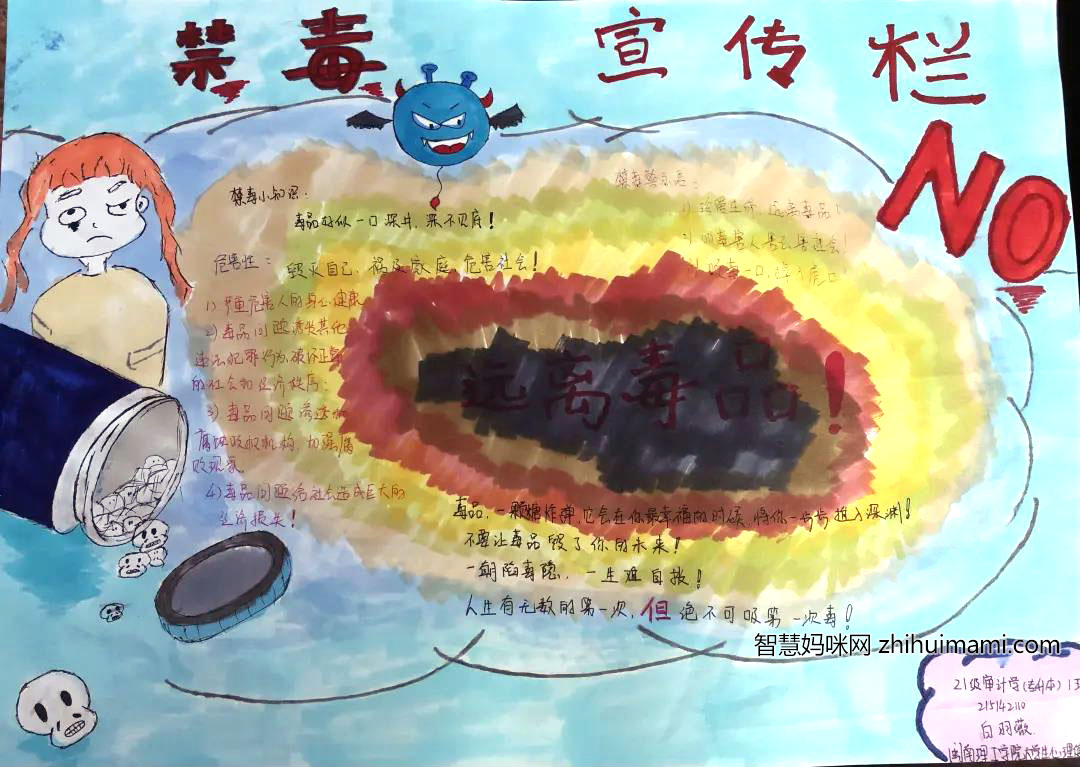 禁毒 宣传栏
NO
禁毒小知识:
毒品好似一口深井,深不见底!
危害性:毁灭自己,祸及家庭,危害社会!
1)严重危害人的身心健康
2)毒品问题诱发其他
违法犯罪行为,破坏正常
的社会和经济秩序;
3)毒品问题渗透和
腐蚀政权机构,加强腐
败现象
4)毒品问题给社会造成巨大的
经济损失!
禁毒警示语:
1)珍爱生命,远离毒品!
2)吸毒害人害己害社会!
3)吸毒一口,掉入虎口
远离毒品!
毒品,一颗糖炸弹,它会在你最幸福的时候,将你一步步拉入深渊!
不要让毒品毁了你的未来!
一朝陷毒瘾,一生难自拔!
人生有无数的第一次,但绝不可吸第一次毒!
智慧妈咪网 zhihuimami.com
21级审计学(专升本)1班
215142110
白羽薇
闽南理工学院大学生心理